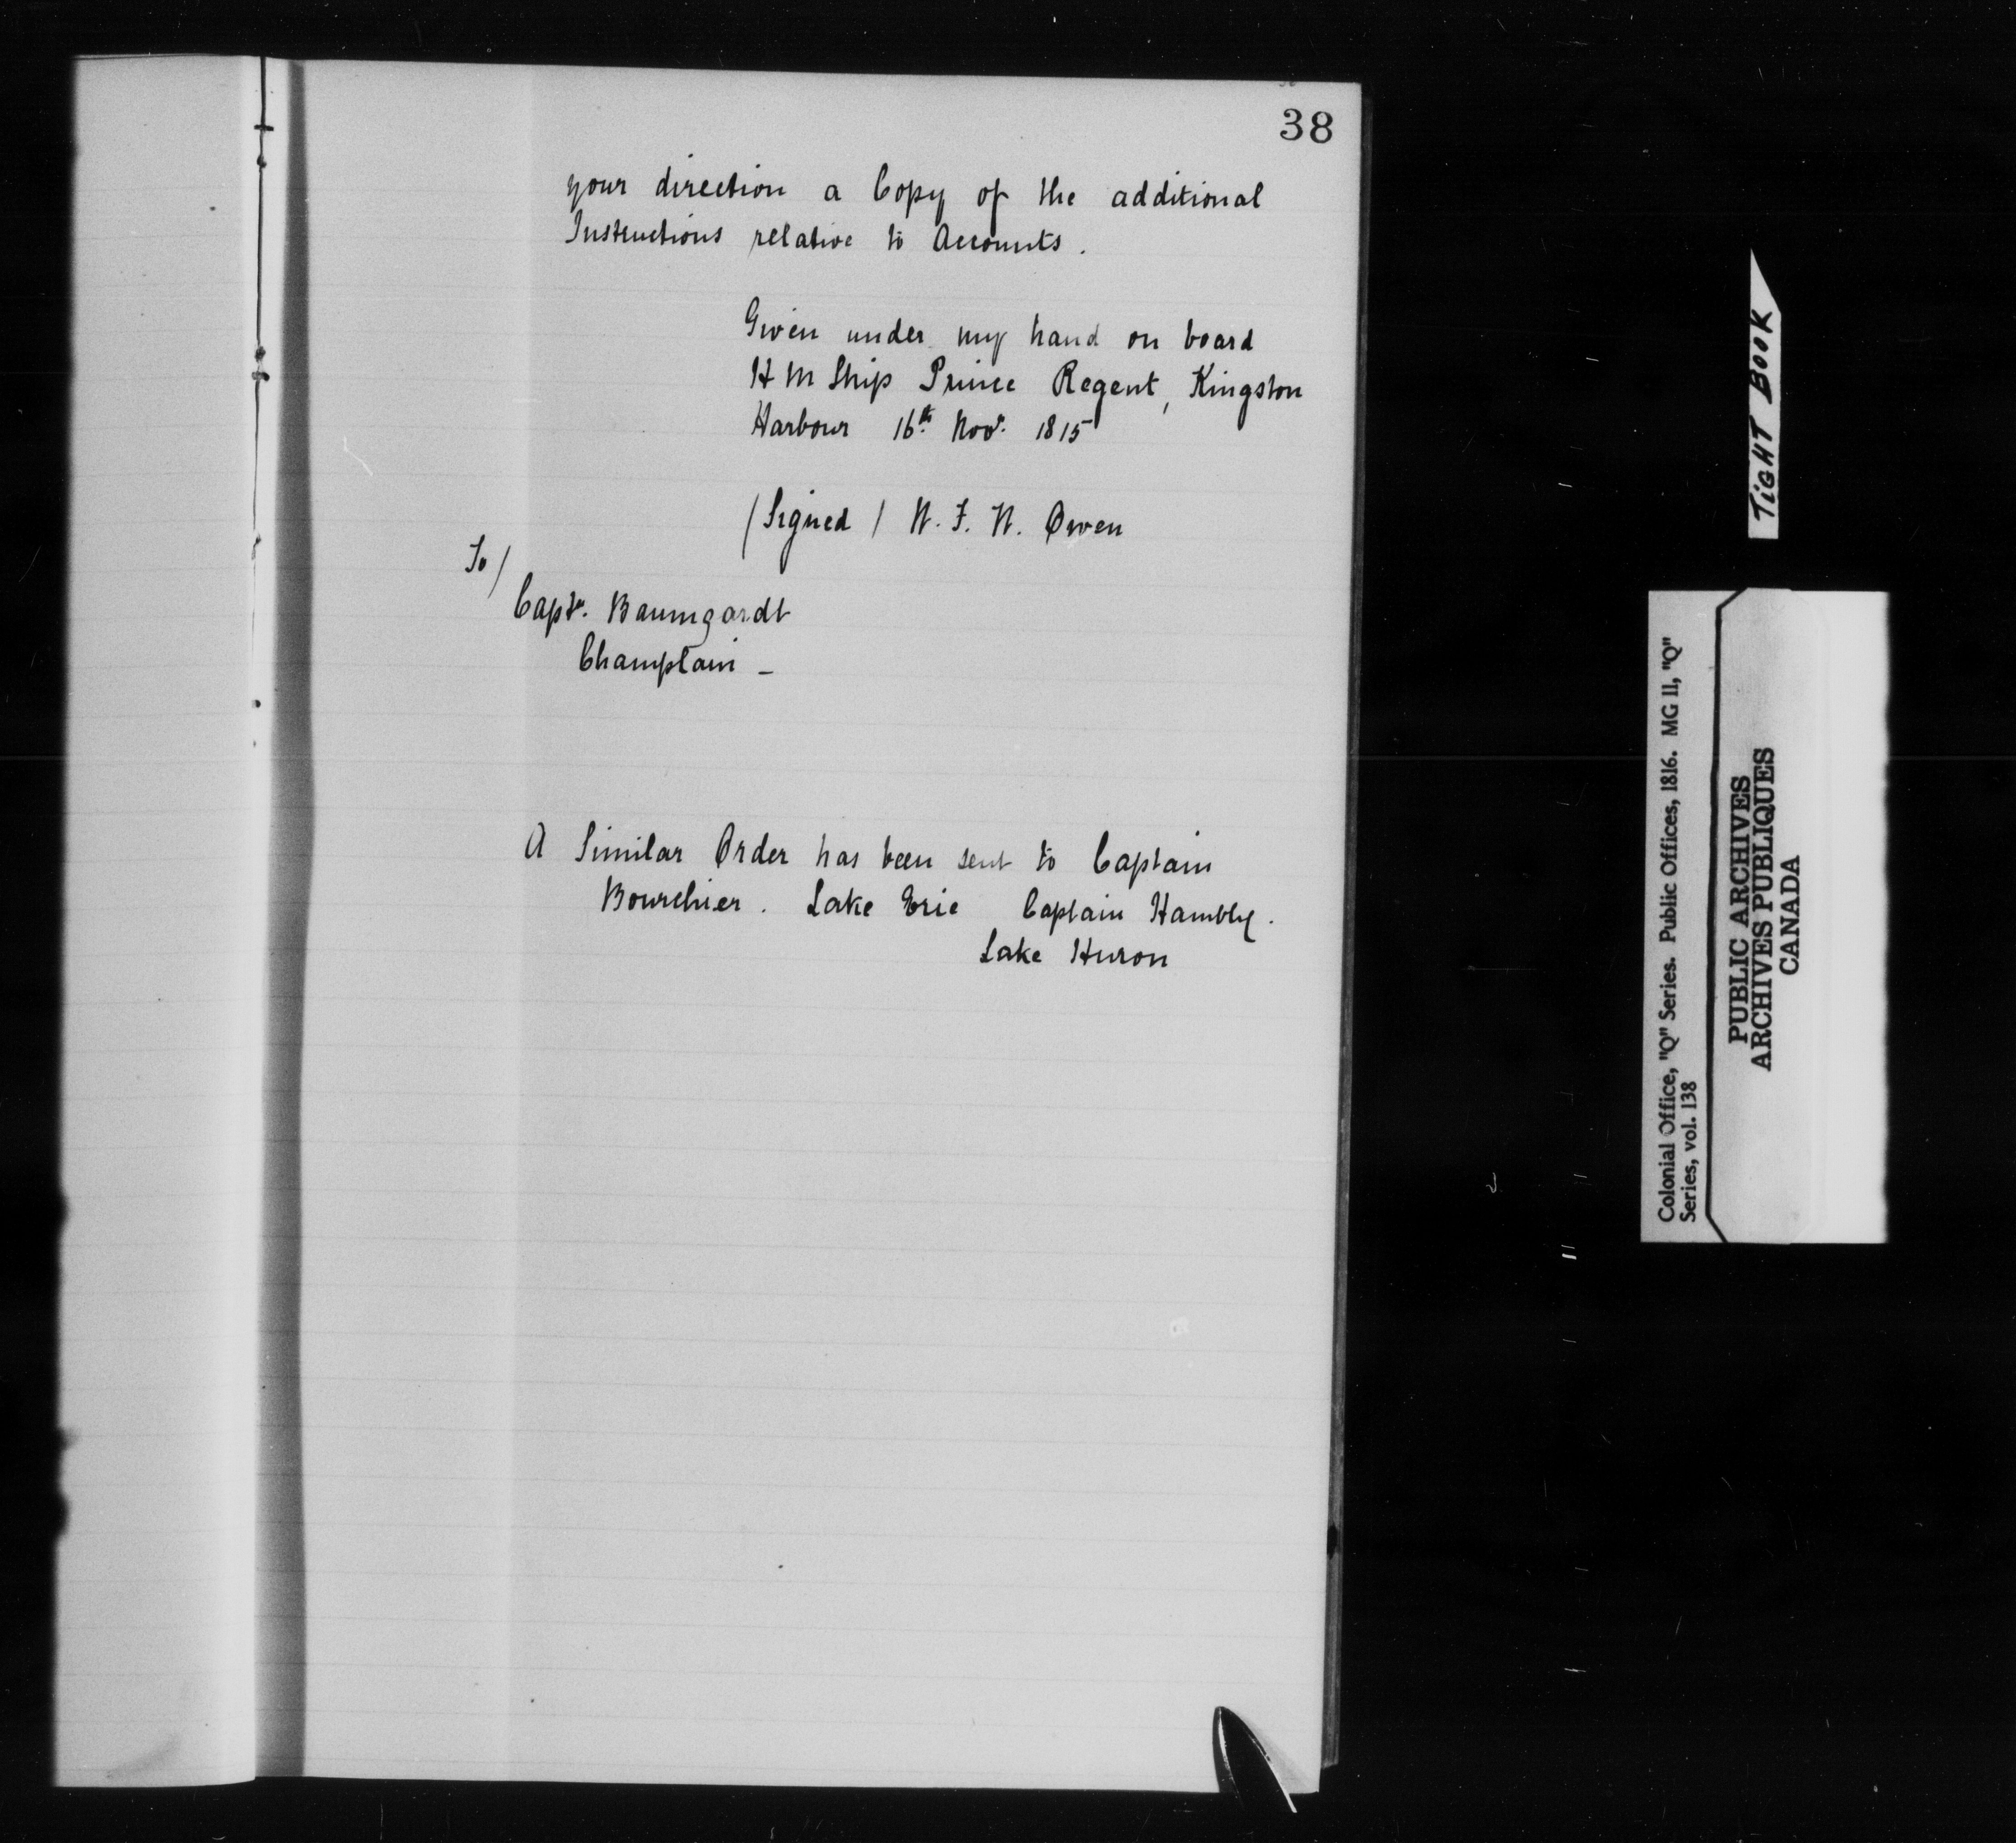 38
your direction a Copy of the additional
Instructions relative to Accounts.
Given under my hand on board
H M Ship Prince Regent, Kingston
Harbour 16th Novr. 1815
/Signed/ W. F. W. Owen
To/
Captn. Baumgardt
Champlain -
A Similar Order has been sent to Captain
Bourchier. Lake Erie Captain Hambly.
Lake Huron
TIGHT BOOK
Colonial Office, "Q" Series. Public Offices, 1816. MG 11, "Q"
Series, vol. 138
PUBLIC ARCHIVES
ARCHIVES PUBLIQUES
CANADA